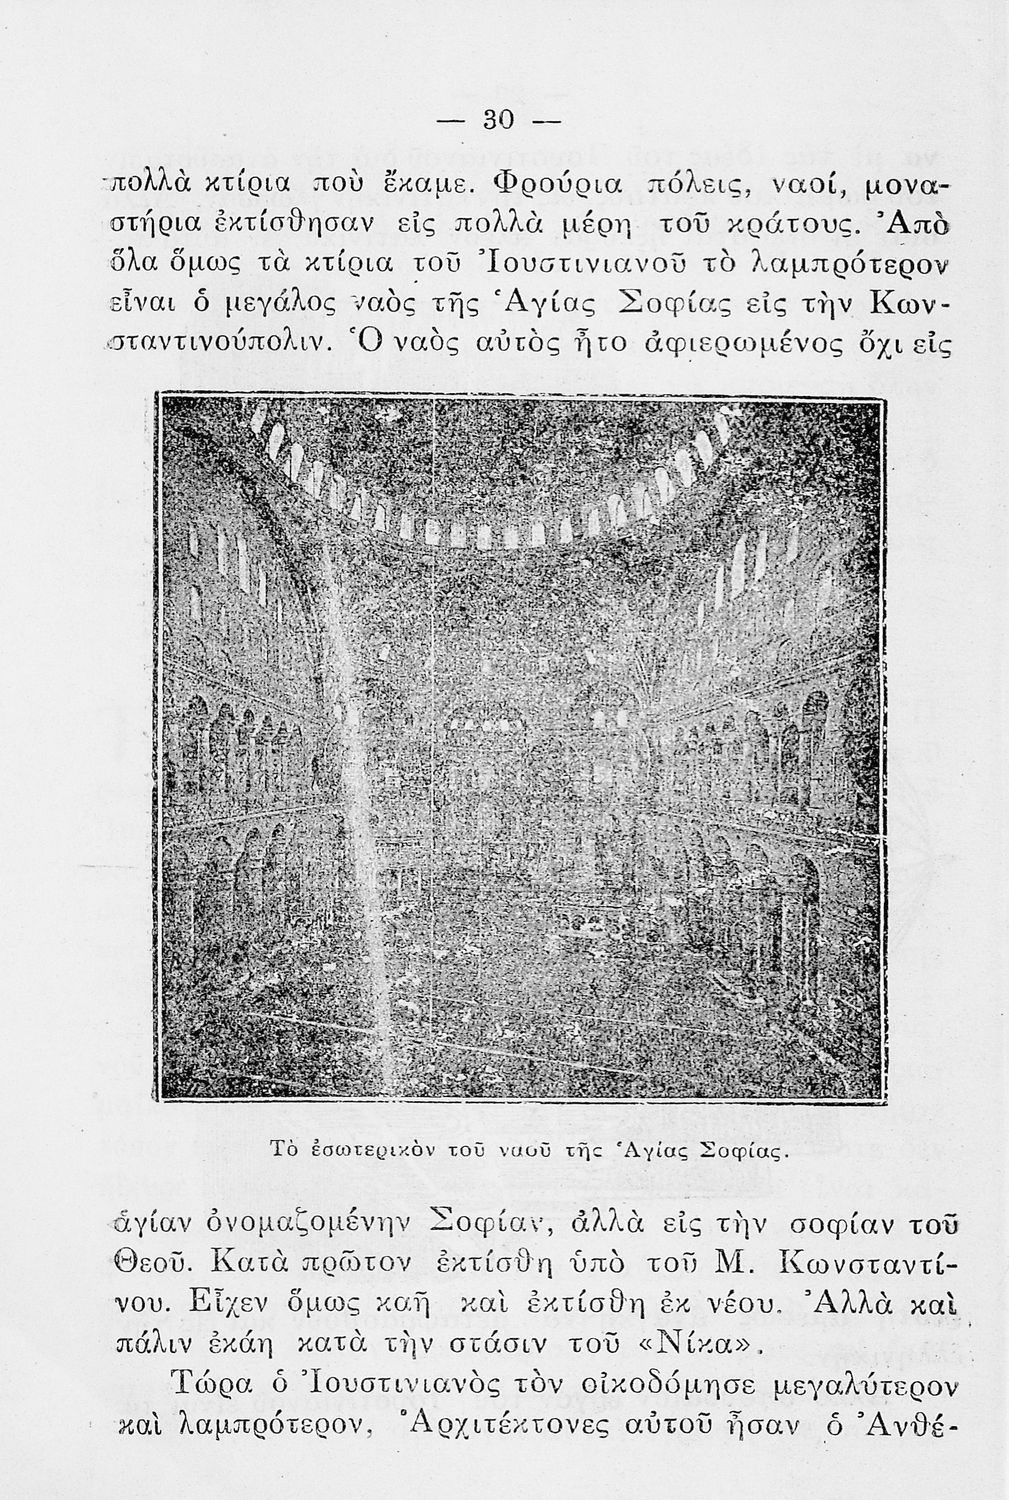 — 30 —
πολλὰ κτίρια ποὺ ἔκαμε. Φρούρια πόλεις, ναοί, μονα-
στήρια ἐκτίσθησαν εἰς πολλὰ μέρη τοῦ κράτους. Ἀπὸ
ὅλα ὅμως τὰ κτίρια τοῦ Ἰουστινιανοῦ τὸ λαμπρότερον
εἶναι ὁ μεγάλος ναὸς τῆς Ἁγίας Σοφίας εἰς τὴν Κων-
σταντινούπολιν. Ὁ ναὸς αὐτὸς ἦτο ἀφιερωμένος ὄχι εἰς
Τὸ ἐσωτερικὸν τοῦ ναοῦ τῆς Ἁγίας Σοφίας.
ἁγίαν ὀνομαζομένην Σοφίαν, ἀλλὰ εἰς τὴν σοφίαν τοῦ
Θεοῦ. Κατὰ πρῶτον ἐκτίσθη ὑπὸ τοῦ Μ. Κωνσταντί-
νου. Εἶχεν ὅμως καῆ καὶ ἐκτίσθη ἐκ νέου. Ἀλλὰ καὶ
πάλιν ἐκάη κατὰ τὴν στάσιν τοῦ «Νίκα».
Τώρα ὁ Ἰουστινιανὸς τὸν οἰκοδόμησε μεγαλύτερον
καὶ λαμπρότερον, Ἀρχιτέκτονες αὐτοῦ ἦσαν ὁ Ἀνθέ-